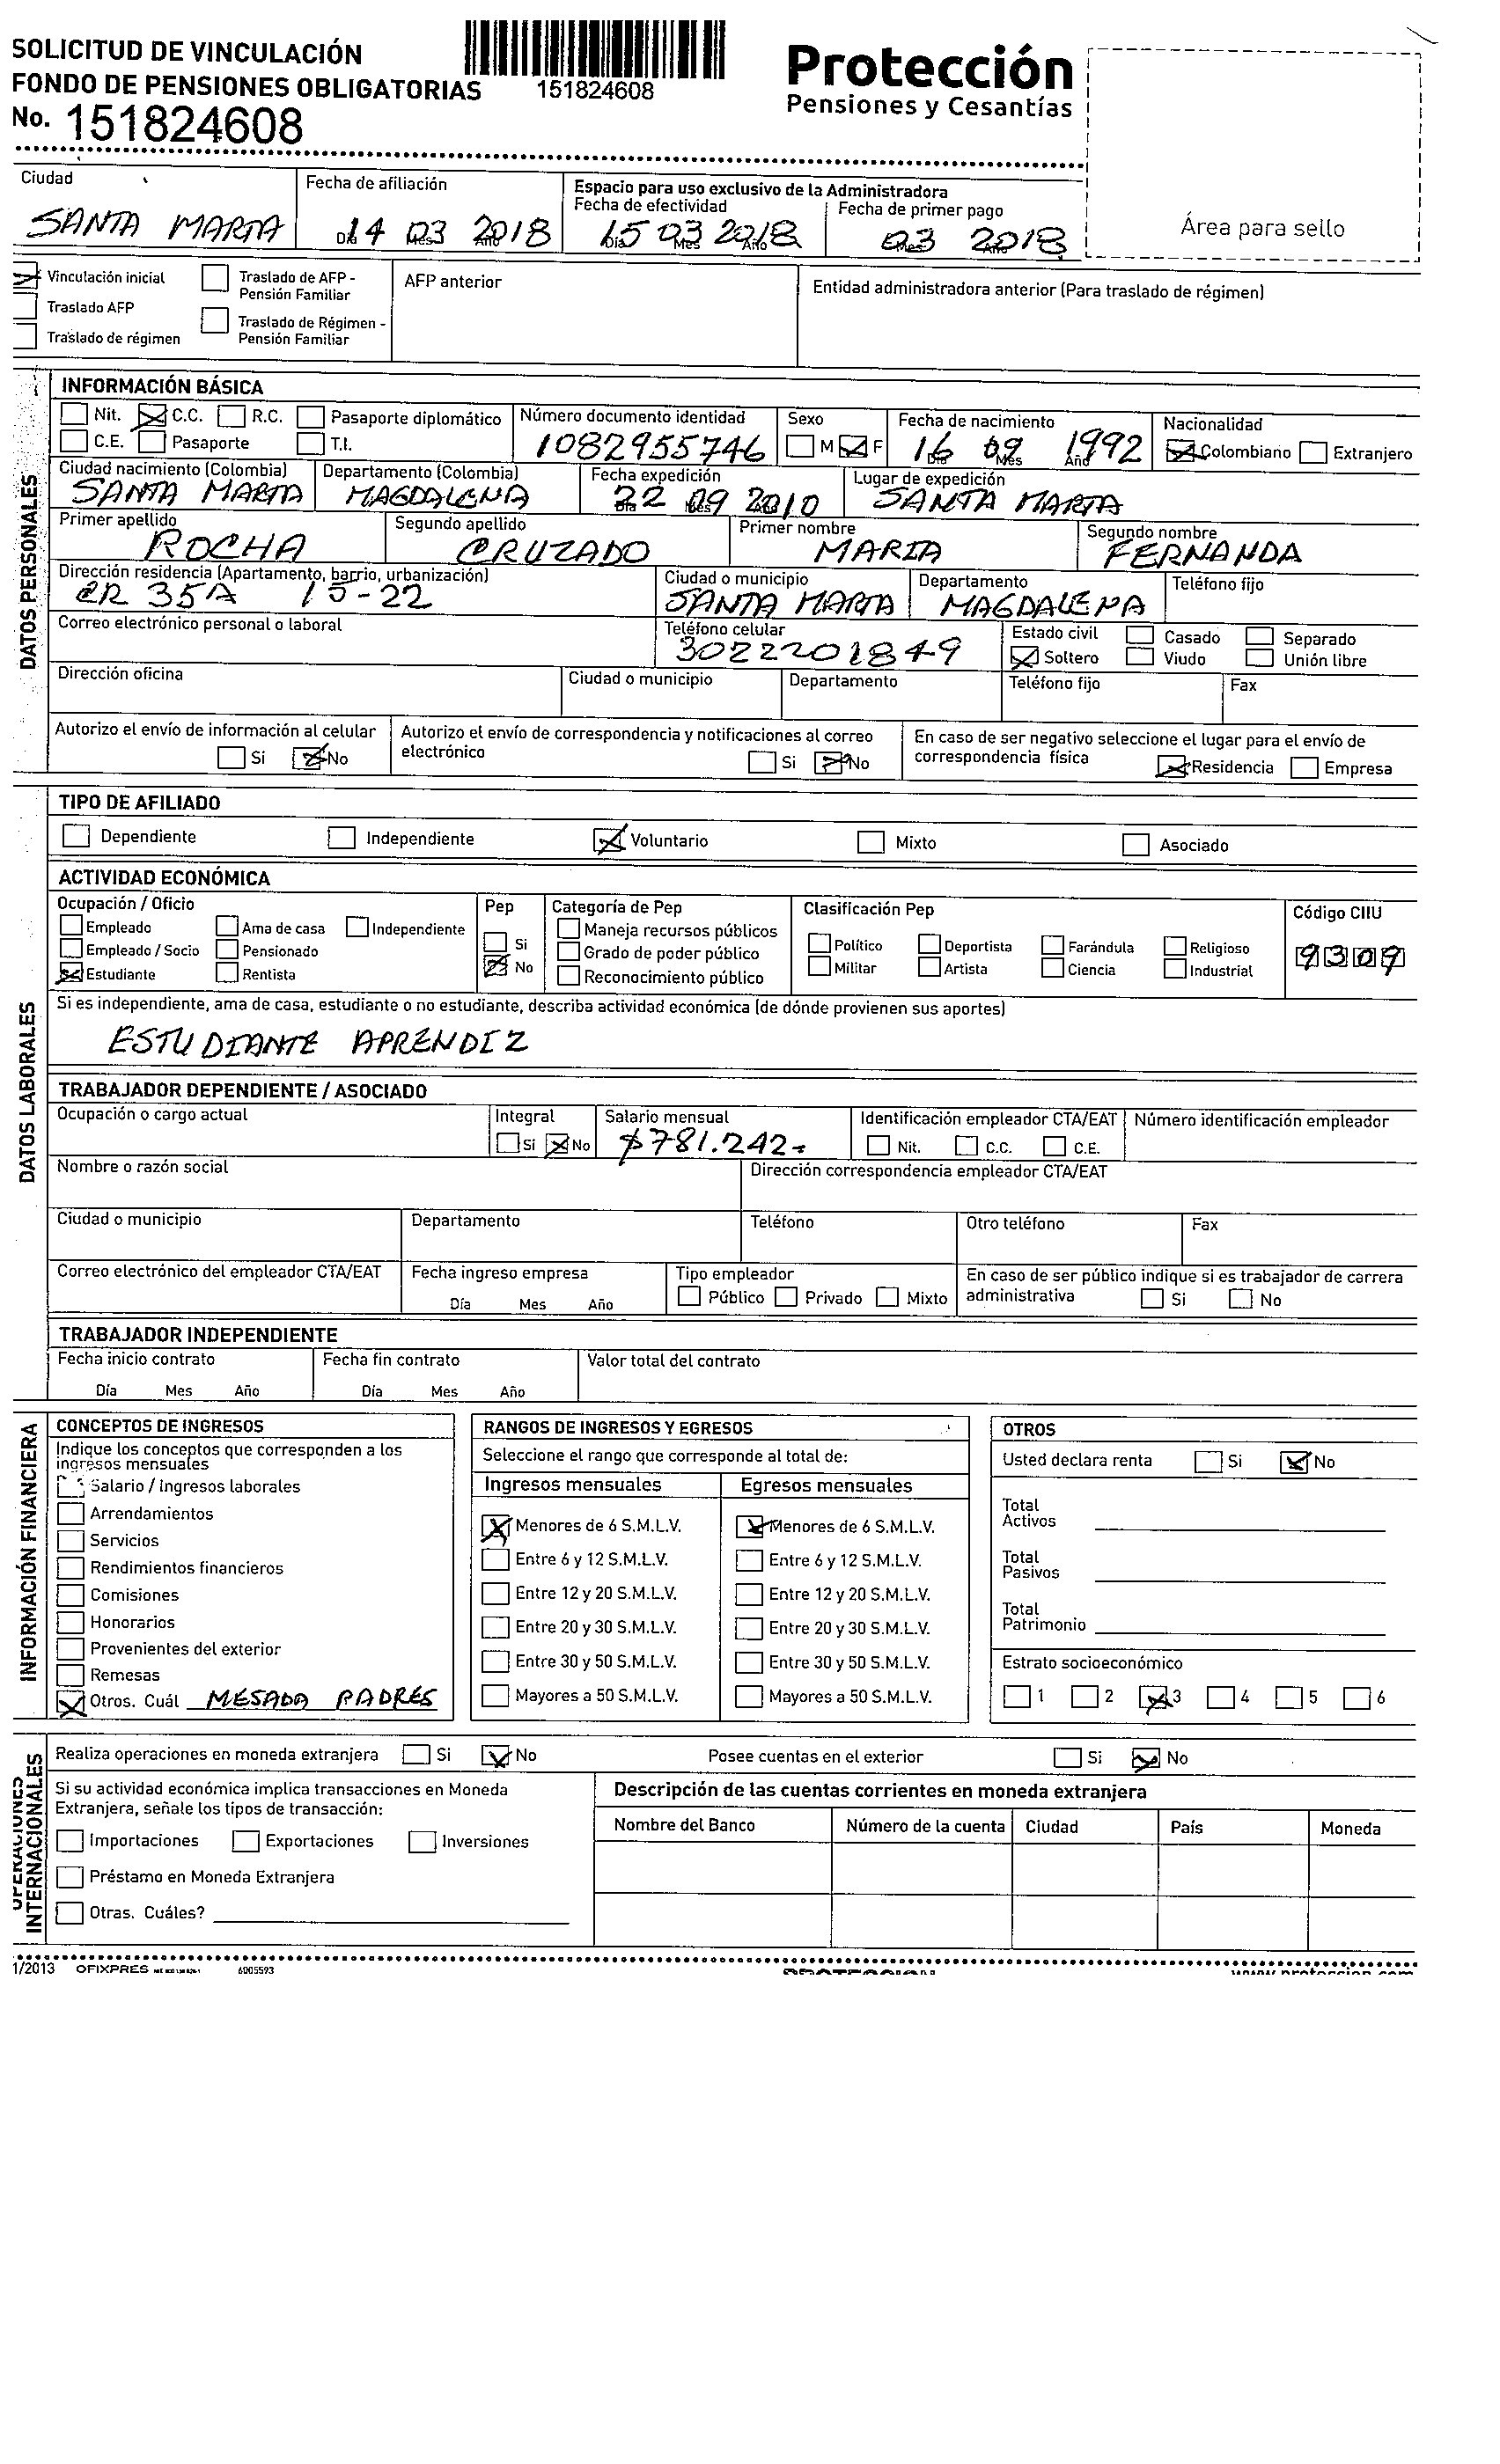 SOLICITUD DE VINCULACIÓN
FONDO DE PENSIONES OBLIGATORIAS
151824608
No. 151824608
Protección
Pensiones y Cesantías
Área para sello
Ciudad
SANTA MARTA
Fecha de afiliación
Día 14 Mes 03 Año 2018
Espacio para uso exclusivo de la Administradora
Fecha de efectividad
Día 15 Mes 03 Año 2018
Fecha de primer pago
Mes 03 Año 2018
Vinculación inicial
Traslado AFP
Traslado de régimen
Traslado de AFP -
Pensión Familiar
Traslado de Régimen -
Pensión Familiar
AFP anterior
Entidad administradora anterior (Para traslado de régimen)
DATOS PERSONALES
INFORMACIÓN BÁSICA
Nit. C.C. R.C. Pasaporte diplomático
C.E. Pasaporte T.I.
Número documento identidad
1082955746
Sexo
M F
Fecha de nacimiento
Día 16 Mes 09 Año 1992
Nacionalidad
Colombiano Extranjero
Ciudad nacimiento (Colombia)
SANTA MARTA
Departamento (Colombia)
MAGDALENA
Fecha expedición
Día 22 Mes 09 Año 2010
Lugar de expedición
SANTA MARTA
Primer apellido
ROCHA
Segundo apellido
CRUZADO
Primer nombre
MARIA
Segundo nombre
FERNANDA
Dirección residencia (Apartamento, barrio, urbanización)
CR 35A 15-22
Ciudad o municipio
SANTA MARTA
Departamento
MAGDALENA
Teléfono fijo
Correo electrónico personal o laboral
Teléfono celular
3022201849
Estado civil Casado Separado
Soltero Viudo Unión libre
Dirección oficina
Ciudad o municipio
Departamento
Teléfono fijo
Fax
Autorizo el envío de información al celular
Si No
Autorizo el envío de correspondencia y notificaciones al correo
electrónico Si No
En caso de ser negativo seleccione el lugar para el envío de
correspondencia física Residencia Empresa
DATOS LABORALES
TIPO DE AFILIADO
Dependiente Independiente Voluntario Mixto Asociado
ACTIVIDAD ECONÓMICA
Ocupación / Oficio
Empleado Ama de casa Independiente
Empleado / Socio Pensionado
Estudiante Rentista
Pep
Si
No
Categoría de Pep
Maneja recursos públicos
Grado de poder público
Reconocimiento público
Clasificación Pep
Político Deportista Farándula Religioso
Militar Artista Ciencia Industrial
Código CIIU
9309
Si es independiente, ama de casa, estudiante o no estudiante, describa actividad económica (de dónde provienen sus aportes)
ESTUDIANTE APRENDIZ
TRABAJADOR DEPENDIENTE / ASOCIADO
Ocupación o cargo actual
Integral
Si No
Salario mensual
$781.242-
Identificación empleador CTA/EAT
Nit. C.C. C.E.
Número identificación empleador
Nombre o razón social
Dirección correspondencia empleador CTA/EAT
Ciudad o municipio
Departamento
Teléfono
Otro teléfono
Fax
Correo electrónico del empleador CTA/EAT
Fecha ingreso empresa
Día Mes Año
Tipo empleador
Público Privado Mixto
En caso de ser público indique si es trabajador de carrera
administrativa Si No
TRABAJADOR INDEPENDIENTE
Fecha inicio contrato
Día Mes Año
Fecha fin contrato
Día Mes Año
Valor total del contrato
INFORMACIÓN FINANCIERA
CONCEPTOS DE INGRESOS
Indique los conceptos que corresponden a los
ingresos mensuales
Salario / Ingresos laborales
Arrendamientos
Servicios
Rendimientos financieros
Comisiones
Honorarios
Provenientes del exterior
Remesas
Otros. Cuál MESADA PADRES
RANGOS DE INGRESOS Y EGRESOS
Seleccione el rango que corresponde al total de:
Ingresos mensuales Egresos mensuales
Menores de 6 S.M.L.V. Menores de 6 S.M.L.V.
Entre 6 y 12 S.M.L.V. Entre 6 y 12 S.M.L.V.
Entre 12 y 20 S.M.L.V. Entre 12 y 20 S.M.L.V.
Entre 20 y 30 S.M.L.V. Entre 20 y 30 S.M.L.V.
Entre 30 y 50 S.M.L.V. Entre 30 y 50 S.M.L.V.
Mayores a 50 S.M.L.V. Mayores a 50 S.M.L.V.
OTROS
Usted declara renta Si No
Total
Activos
Total
Pasivos
Total
Patrimonio
Estrato socioeconómico
1 2 3 4 5 6
OPERACIONES
INTERNACIONALES
Realiza operaciones en moneda extranjera Si No
Posee cuentas en el exterior Si No
Si su actividad económica implica transacciones en Moneda
Extranjera, señale los tipos de transacción:
Importaciones Exportaciones Inversiones
Préstamo en Moneda Extranjera
Otras. Cuáles?
Descripción de las cuentas corrientes en moneda extranjera
Nombre del Banco Número de la cuenta Ciudad País Moneda
1/2013 OFIXPRES 6005593